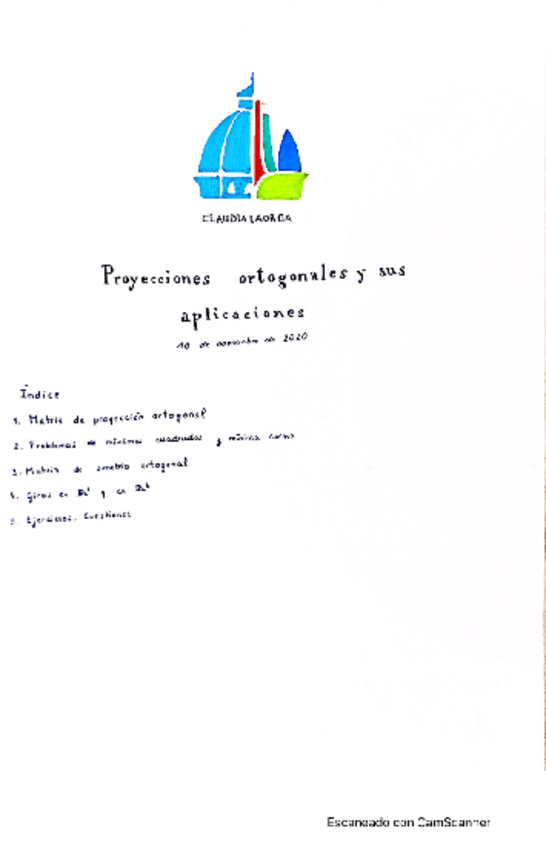 CLAUDIA LAORGA
Proyecciones ortogonales y sus
aplicaciones
10 de noviembre de 2020
Índice
1. Matriz de proyección ortogonal
2. Problemas de mínimos cuadrados y mínima norma
3. Matriz de simetría ortogonal
4. Giros en y en
5. Ejercicios. Cuestiones
Escaneado con CamScanner